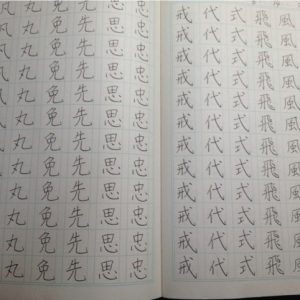 丸免先思忠
丸免先思忠
丸免先思忠
丸免先思忠
丸免先思忠
丸免先思忠
丸免先思忠
丸免先思忠
丸免先思忠
丸免先思忠
戒代式飛風
戒代式飛風
戒代式飛風
戒代式飛風
戒代式飛風
戒代式飛風
戒代式飛風
戒代式飛風
戒代式飛風
戒代式飛風
戒代式飛風